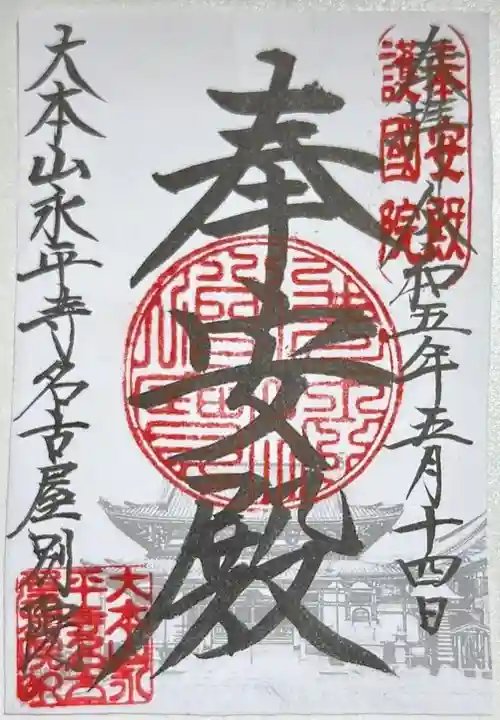 奉拝 令和五年五月十四日
奉安殿
護國院
奉安殿
大本山永平寺名古屋別院
大本山永
平寺名古